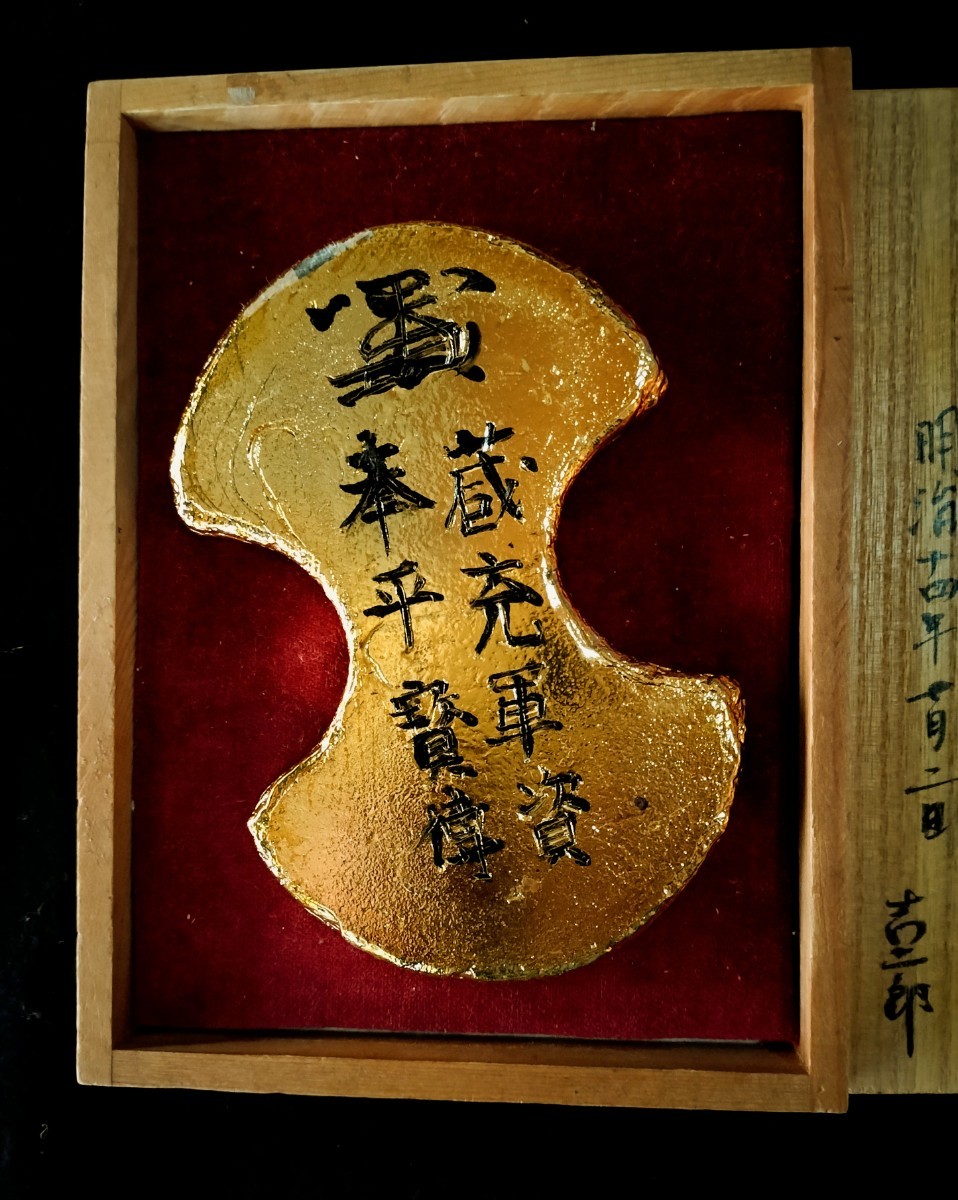 蔵充軍資
奉乎寶偉
明治十四年 月二日
吉二郎